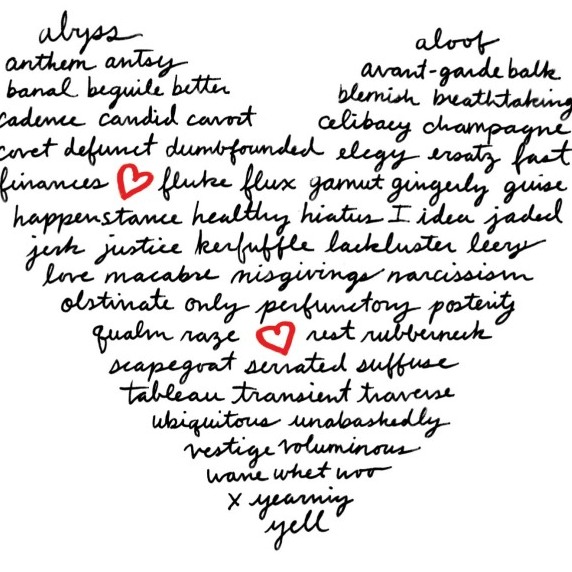 abyss aloof
anthem antsy avant-garde balk
banal beguile better blemish breathtaking
cadence candid cavort celibacy champagne
covet defunct dumbfounded elegy ersatz fast
finances fluke flux gamut gingerly guise
happenstance healthy hiatus I idea jaded
jerk justice kerfuffle lackluster leery
love macabre misgivings narcissism
obstinate only perfunctory posterity
qualm raze rest rubberneck
scapegoat serrated suffuse
tableau transient traverse
ubiquitous unabashedly
vestige voluminous
wane whet woo
x yearning
yell